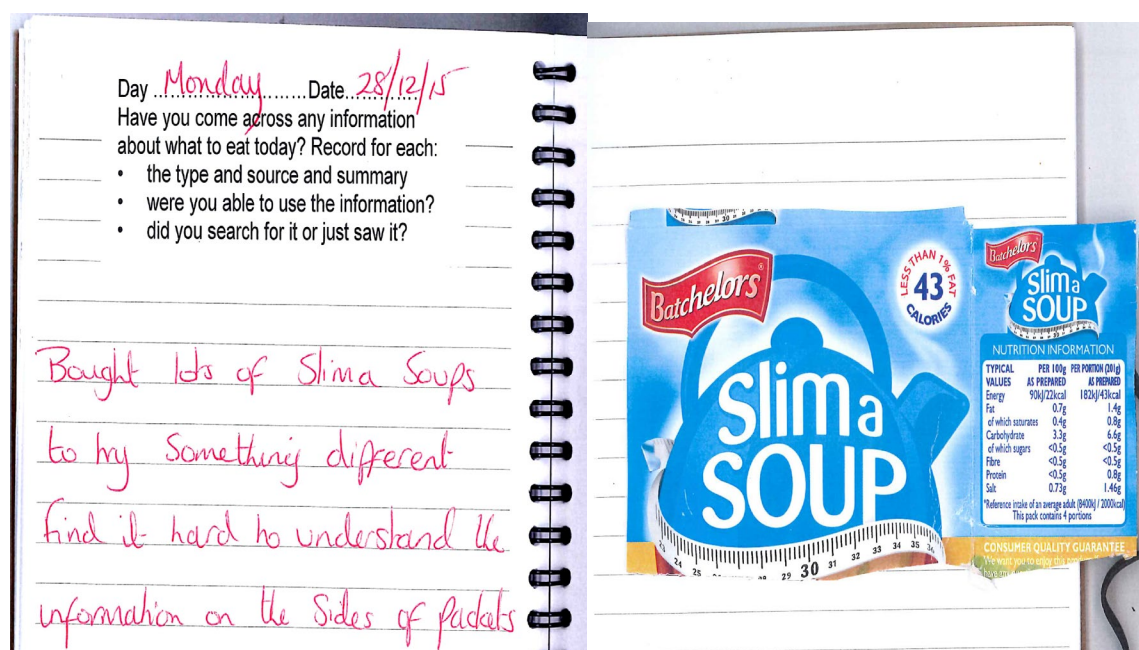 Day Monday Date 28/12/15
Have you come across any information
about what to eat today? Record for each:
• the type and source and summary
• were you able to use the information?
• did you search for it or just saw it?
Bought lots of Slima Soups
to try Something different
find it hard to understand the
information on the Sides of packets
30
Batchelors®
LESS THAN 1% FAT
43
CALORIES
Slim a
SOUP
24 25 29 30 31 32 33 34 35
Batchelors
Slim a
SOUP
NUTRITION INFORMATION
TYPICAL VALUES PER 100g AS PREPARED PER PORTION (201g) AS PREPARED
Energy 90kJ/22kcal 182kJ/43kcal
Fat 0.7g 1.4g
of which saturates 0.4g 0.8g
Carbohydrate 3.3g 6.6g
of which sugars <0.5g <0.5g
Fibre <0.5g <0.5g
Protein <0.5g 0.8g
Salt 0.73g 1.46g
*Reference intake of an average adult (8400kJ / 2000kcal)
This pack contains 4 portions
CONSUMER QUALITY GUARANTEE
We want you to enjoy this
have